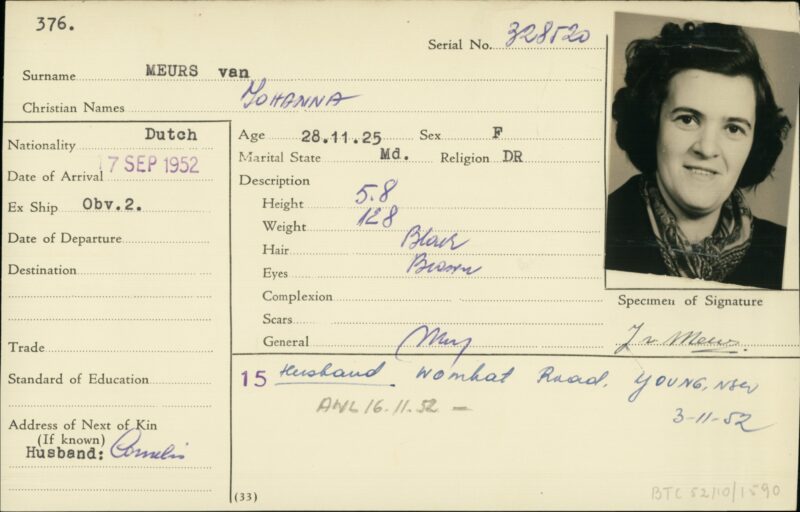 376.
Serial No. 328520
Surname MEURS van
Christian Names JOHANNA
Nationality Dutch
Date of Arrival 7 SEP 1952
Ex Ship Obv.2.
Date of Departure
Destination
Trade
Standard of Education
Address of Next of Kin
(If known)
Husband: Cornelis
Age 28.11.25 Sex F
Marital State Md. Religion DR
Description
Height 5.8
Weight 128
Hair Black
Eyes Brown
Complexion
Scars
General
Specimen of Signature
J v Meurs.
15 Husband. Wombat Road, YOUNG, NSW
3-11-52
AWL 16.11.52 —
(33)
BTC 52/10/1590